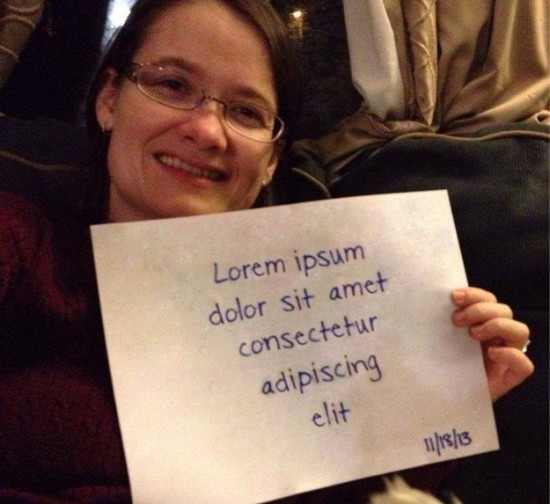 Lorem ipsum
dolor sit amet
consectetur
adipiscing
elit
11/18/13